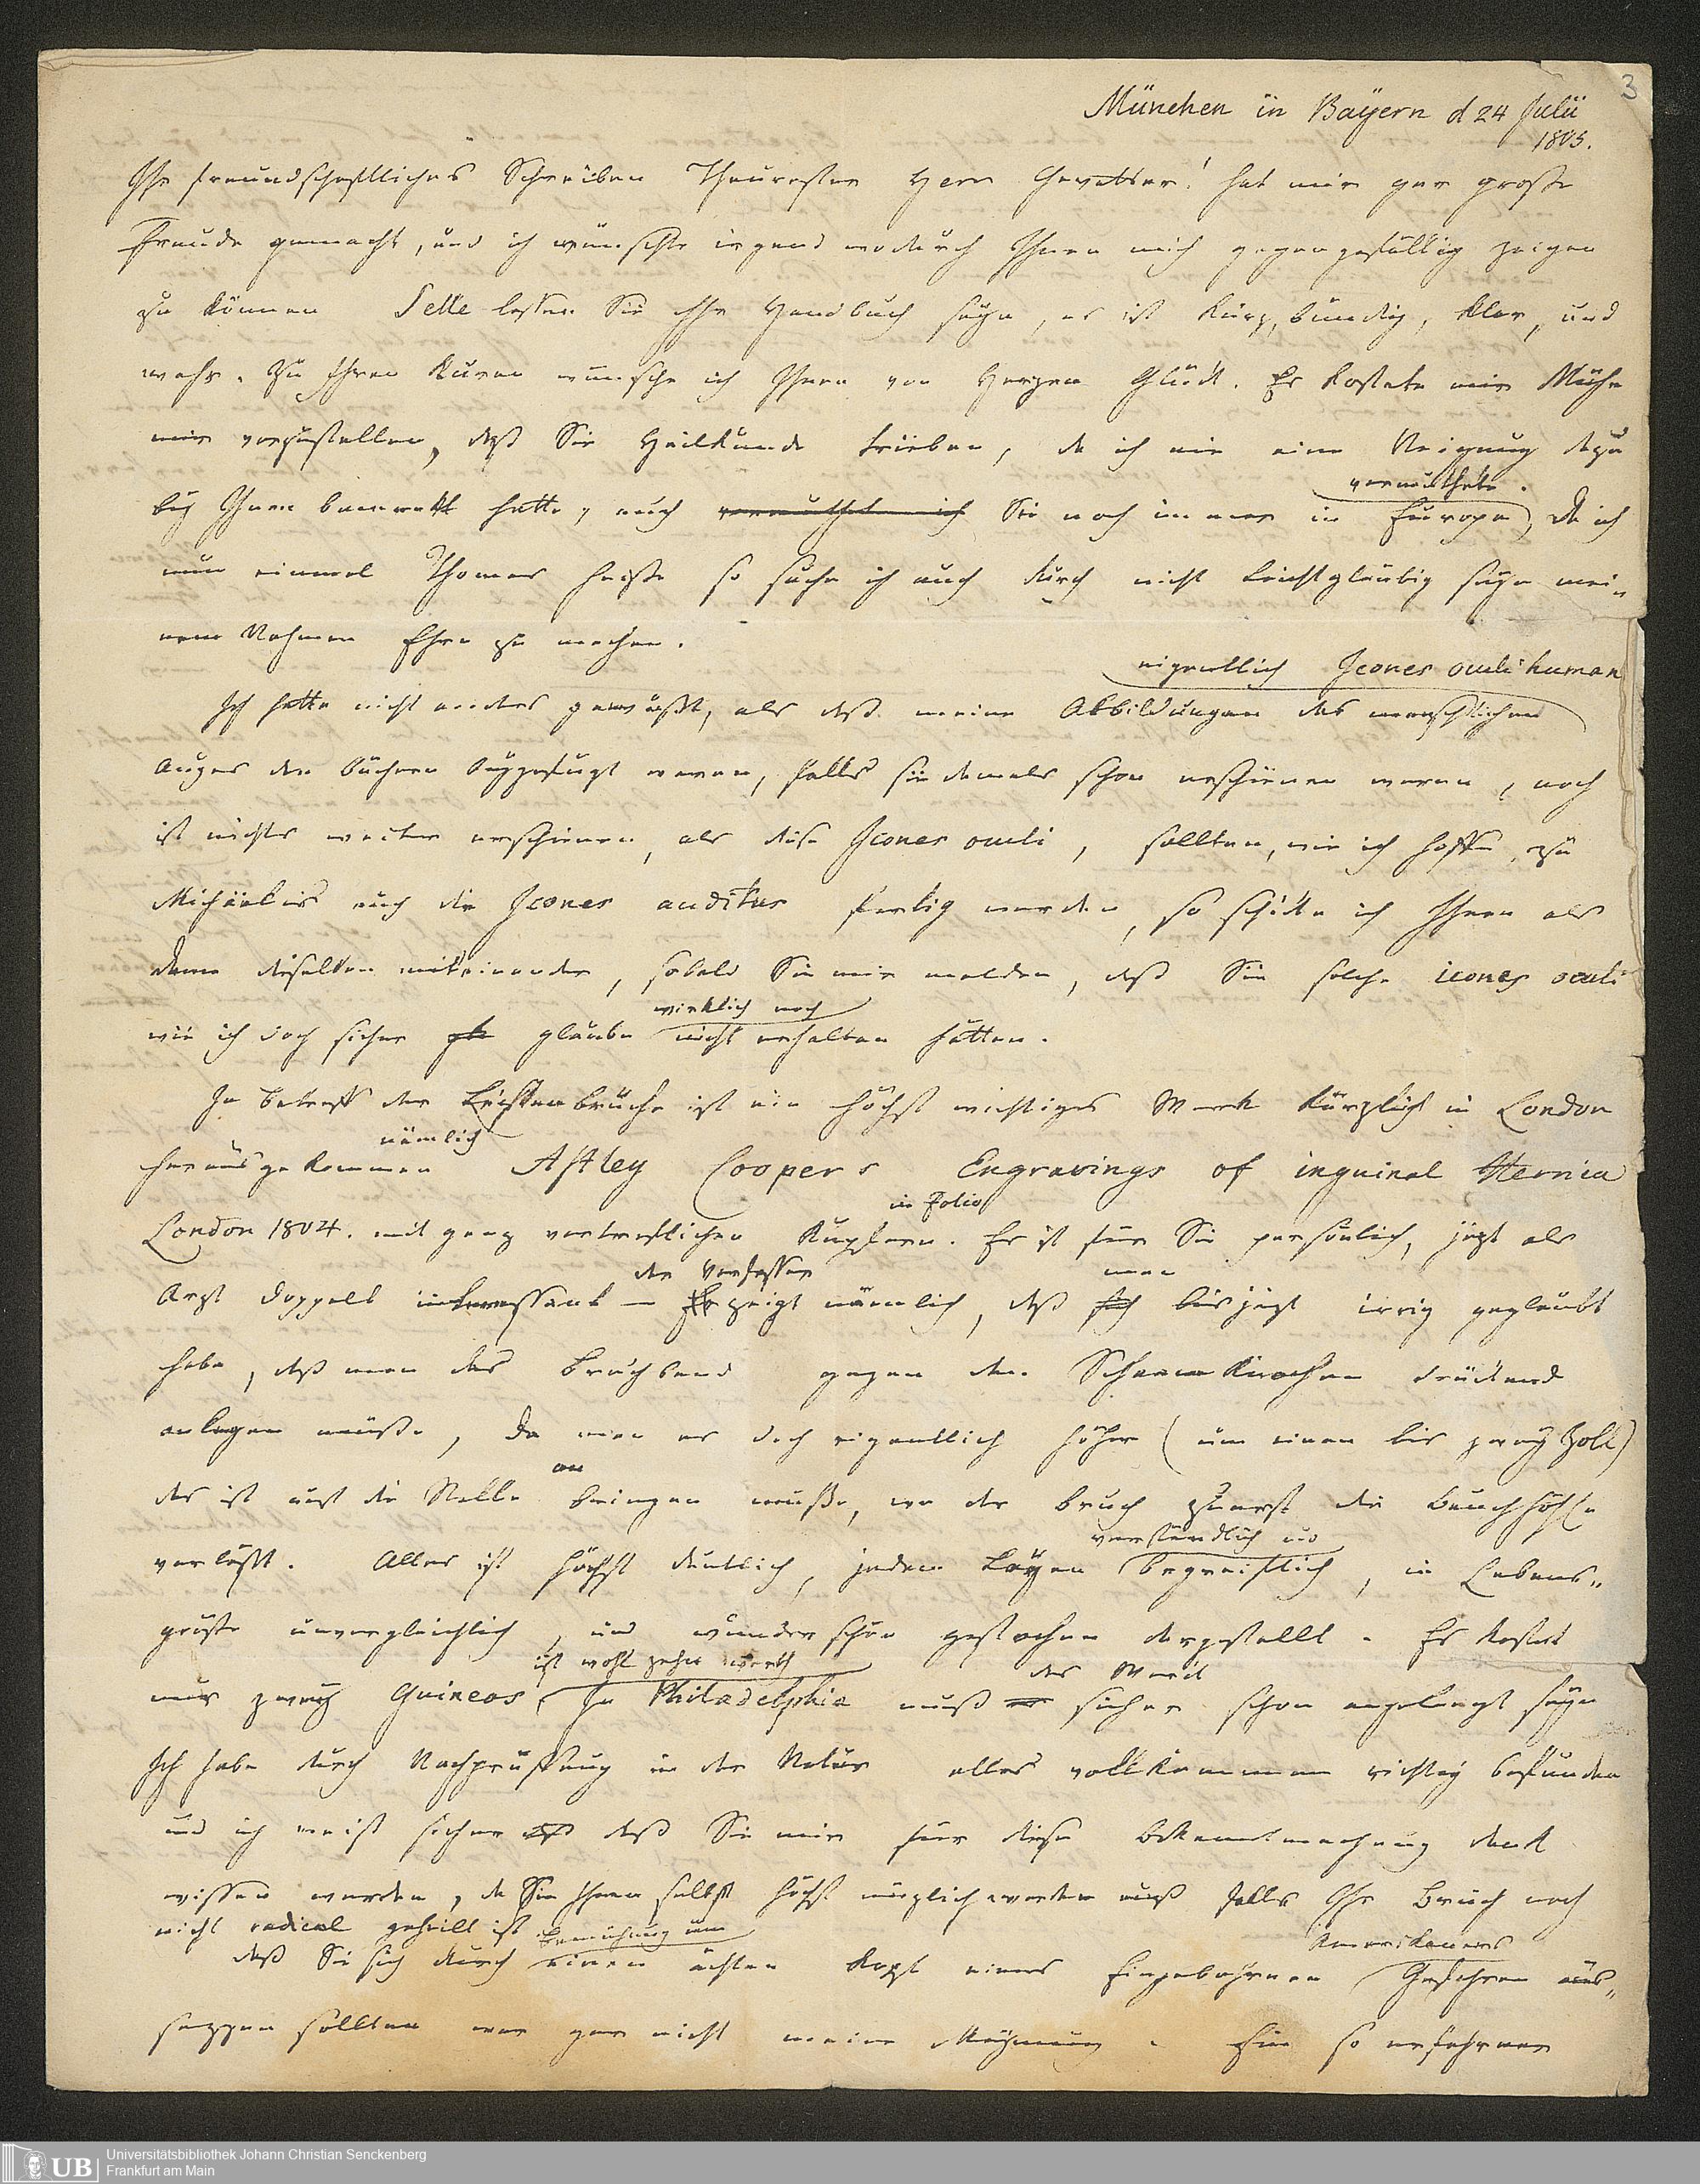 3
München in Bayern d 24 Julii
1805.
Ihr freundschaftliches Schreiben Theurester Herr Gevatter! hat mir gar große
Freude gemacht, und ich wünschte irgend wodurch Ihnen mich gegengefällig zeigen
zu können Selle lassen Sie Ihr Handbuch seyn, es ist kurz, bündig, klar, und
wahr. Zu Ihren Kuren wünsche ich Ihnen von Herzen Glück. Es kostete mir Mühe
mir vorzustellen, daß Sie Heilkunde trieben, da ich nie eine Neigung dazu
vermuthete.
bey Ihnen bemerkt hatte, auch vermuthete ich Sie noch immer in Europa, Da ich
nun einmal Thomas heiße so suche ich auch durch nicht leichtglaubig seyn mei-
nem Nahmen Ehre zu machen.
eigentlich Icones oculi human
Ich hatte nicht anders gewußt, als daß meine Abbildungen des menschlichen
Auges den Büchern beygefügt waren, falls sie damals schon erschienen waren, noch
ist nichts weiter erschienen, als diese Icones oculi, sollten, wie ich hoffe, zu
Michaelis auch die Icones auditus fertig werden, so schicke ich Ihnen als
dann dieselben miteinander, sobald Sie mir melden, daß Sie solche icones oculi
wirklich noch
wie ich doch sicher glaube nicht erhalten hätten.
In Betreff der Leistenbrüche ist ein höchst wichtiges Werk kürzlich in London
nämlich
herausgekommen Astley Coopers Engravings of inguinal Hernia
in Folio
London 1804. mit ganz vortreflichen Kupfern. Es ist für Sie persönlich, jezt als
der Verfasser man
Arzt doppelt interessant — Er zeigt nämlich, daß sich bis jezt irrig geglaubt
habe, daß man das Bruchband gegen den Schaamknochen drückend
anlegen müße, Da man es doch eigentlich höher (um einen bis zwey Zoll)
an
das ist auf die Stelle bringen müße, wo der Bruch zuerst die Bauchhöhle
verständlich und
verläßt. Alles ist höchst deutlich, jedem Layen begreiflich, in Lebens-
größe unvergleichlich, und wunderschön gestochen dargestellt. Es kostet
ist wohl zehn werth das Werk
nur zwey Guineas, In Philadelphia muß es sicher schon angelangt seyn
Ich habe durch Nachprüfung in der Natur alles vollkommen richtig befunden
und ich weiß sicher daß Sie mir für diese Bekanntmachung Dank
wissen werden, da Sie Ihnen selbst höchst nüzlich werden muß falls Ihr Bruch noch
nicht radical geheilt ist
Bemühung um Amerikaners
daß Sie sich durch einen ächten Kopf eines Eingebohrnen Gefahren aus-
sezzen sollten war gar nicht meine Meynung. Ein so erfahrner
UB Universitätsbibliothek Johann Christian Senckenberg
Frankfurt am Main